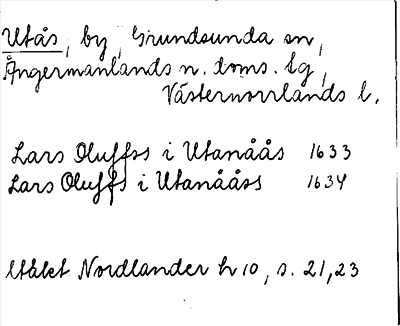 Utås, by, Grundsunda sn,
Ångermanlands n. doms. lg,
Västernorrlands l.
Lars Oluffss i Utanåås 1633
Lars Oluffs i Utanååss 1634
Nordlander h 10, s. 21, 23